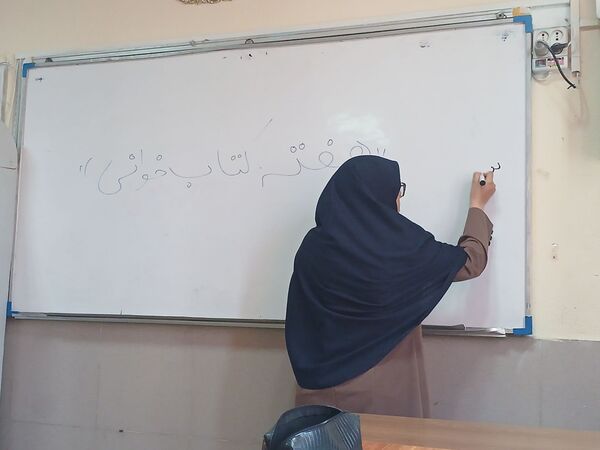 "هفته کتاب خوانی"